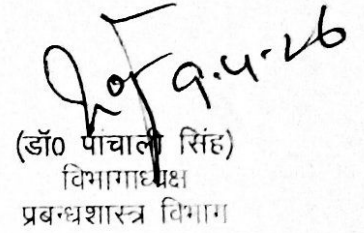 9.4.26
(डॉ0 पांचाली सिंह)
विभागाध्यक्ष
प्रबन्धशास्त्र विभाग